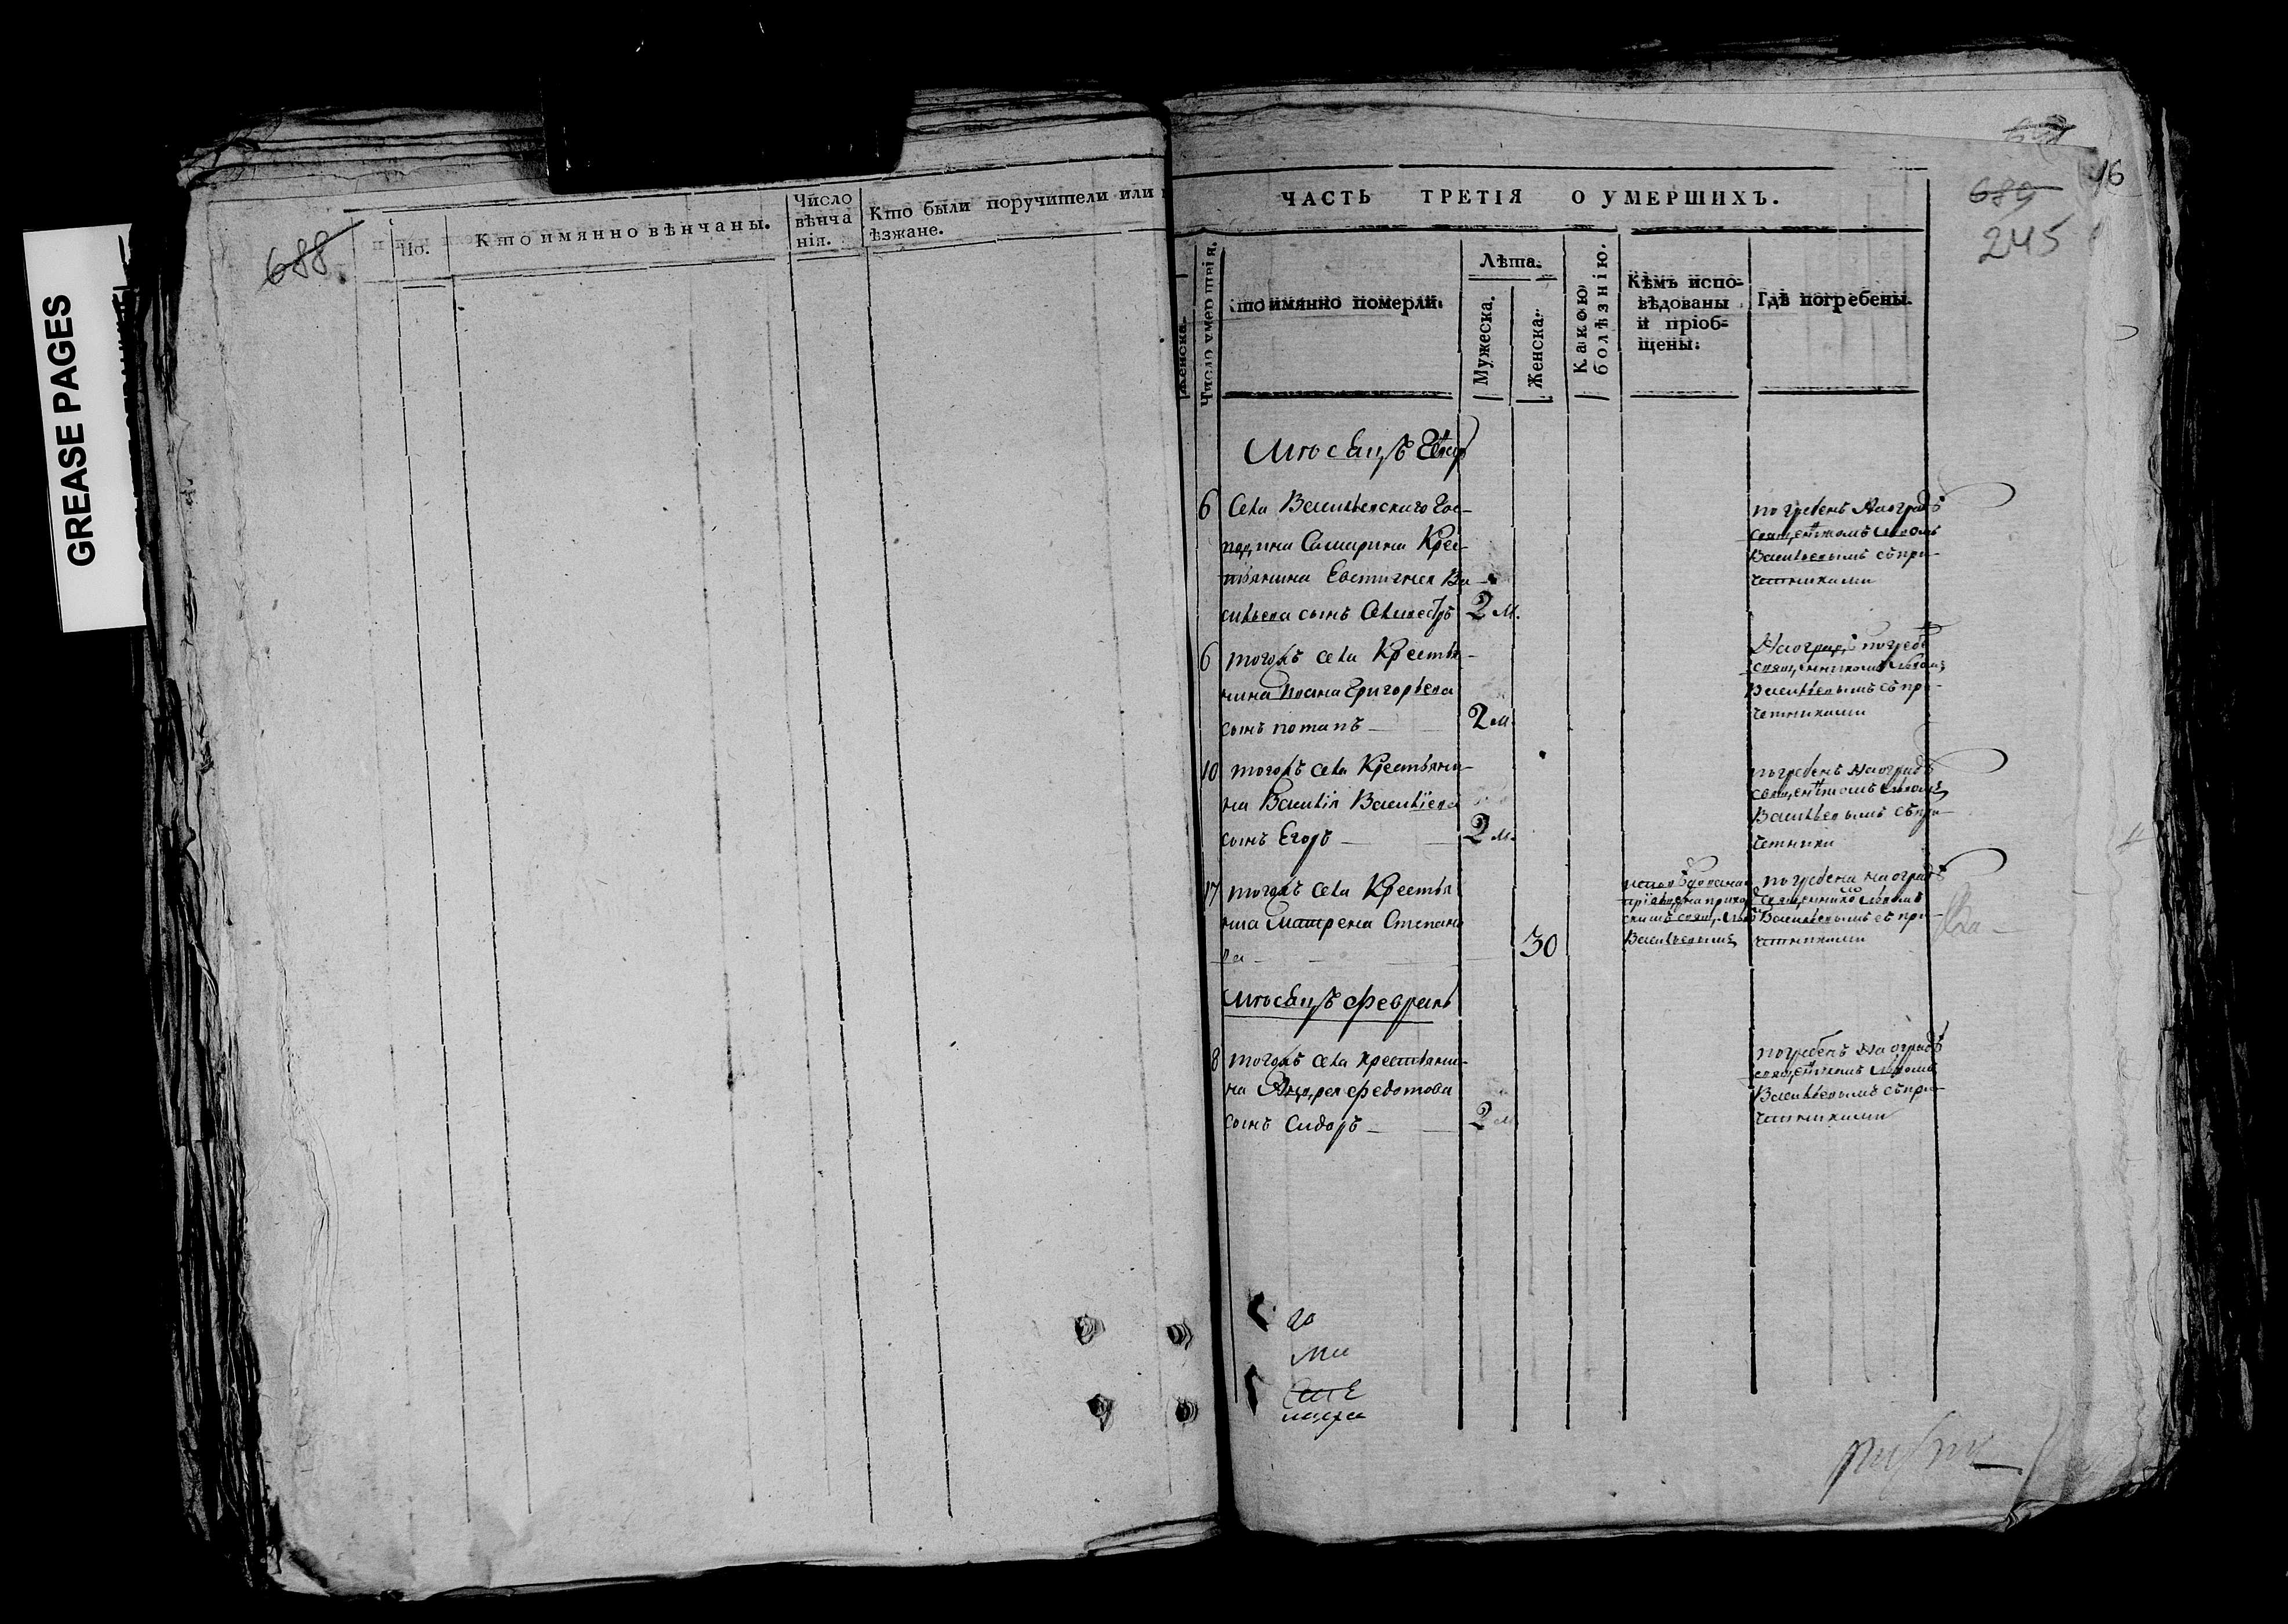 GREASE PAGES
688
По.
Кто имянно вѣнчаны.
Число
вѣнча
нія.
Кто были поручители или
ѣзжане.
16
689
245
ЧАСТЬ ТРЕТІЯ О УМЕРШИХЪ.
Женска.
Число умертвія.
кто имянно померли.
Лѣта.
Мужеска.
Женска.
Какою
болѣзнію.
Кѣмъ испо-
вѣдованы
и пріоб-
щены.
Гдѣ погребены.
Мѣсяцъ
6 Села Васильевскаго Гос-
подина Самарина Крес-
тьянина Евстигнея Ва-
сильева сынъ Силвестръ 2 м.
погребенъ на оградѣ
священникомъ Львомъ
Васильевымъ съ при-
четниками
6 тогожъ села Крестья-
нина Ивана Григорьева
сынъ потапъ 2 м
На оградѣ погребе
священникомъ Львомъ
Васильевымъ съ при-
четниками
10 тогожъ села Крестьяни-
на Василія Васильева
сынъ Егоръ 2 м.
погребенъ на оградѣ
священникомъ Львомъ
Васильевымъ съ при-
четники
17 тогожъ села Крестья
нка Матрена Степано
ва 30
исповѣдована
Васильевымъ
погребена на оградѣ
священнико Львомъ
Васильевымъ съ при-
четниками
Мѣсяцъ февраль
8 тогожъ села крестьяни-
на Андрея федотова
сынъ Сидоръ 2 м
погребенъ на оградѣ
священникомъ Львомъ
Васильевымъ съ при-
четниками